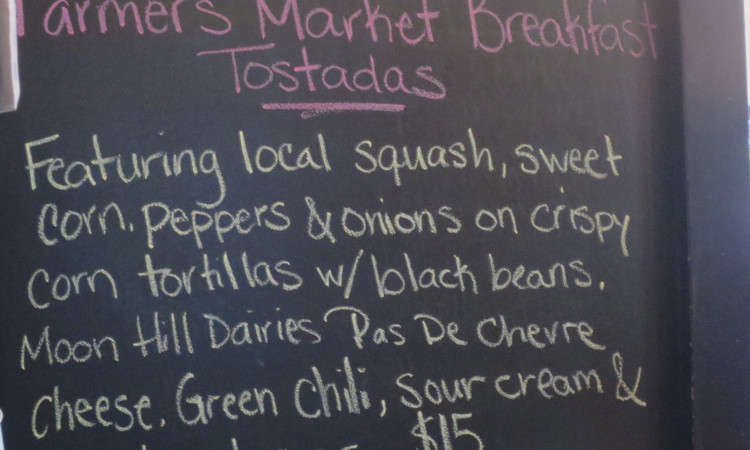 Farmers Market Breakfast
Tostadas
Featuring local squash, sweet
corn. peppers & onions on crispy
corn tortillas w/ black beans.
Moon Hill Dairies Pas De Chevre
cheese. Green chili, sour cream &
$15